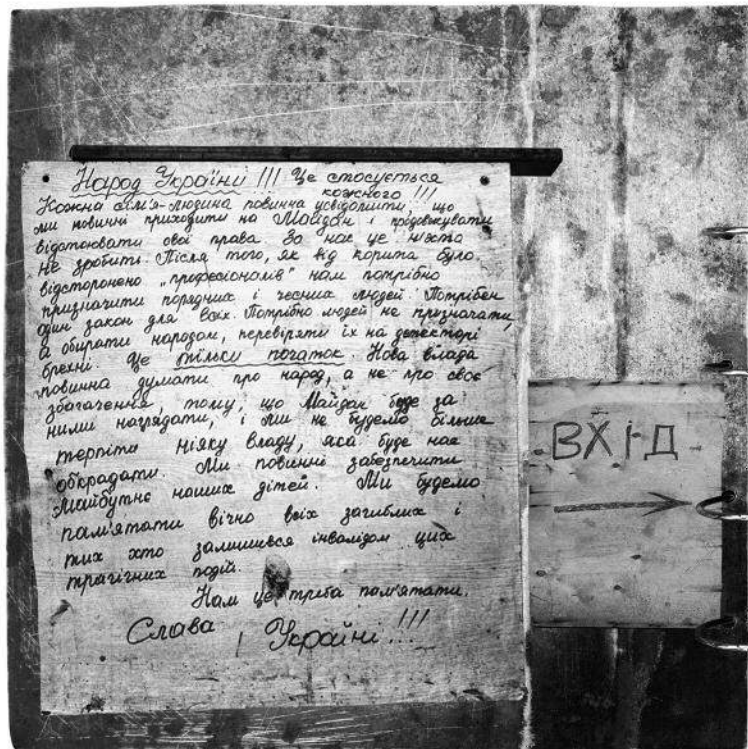 Народ України !!! Це стосується
кожного !!!
Кожна сім'я-людина повинна усвідомити, що
ми повинні приходити на Майдан і продовжувати
відстоювати свої права. За нас це ніхто
не зробить. Після того, як від корита було
відсторонено „професіоналів" нам потрібно
призначити порядних і чесних людей. Потрібен
один закон для всіх. Потрібно людей не призначати,
а обирати народом, перевіряти їх на детекторі
брехні. Це тільки початок. Нова влада
повинна думати про народ, а не про своє
збагачення, тому, що Майдан буде за
ними наглядати, і ми не будемо більше
терпіти ніяку владу, яка буде нас
обкрадати. Ми повинні забезпечити
майбутнє наших дітей. Ми будемо
пам'ятати вічно всіх загиблих і
тих хто залишився інвалідом цих
трагічних подій.
Нам це треба пам'ятати.
Слава Україні !!!
ВХІД